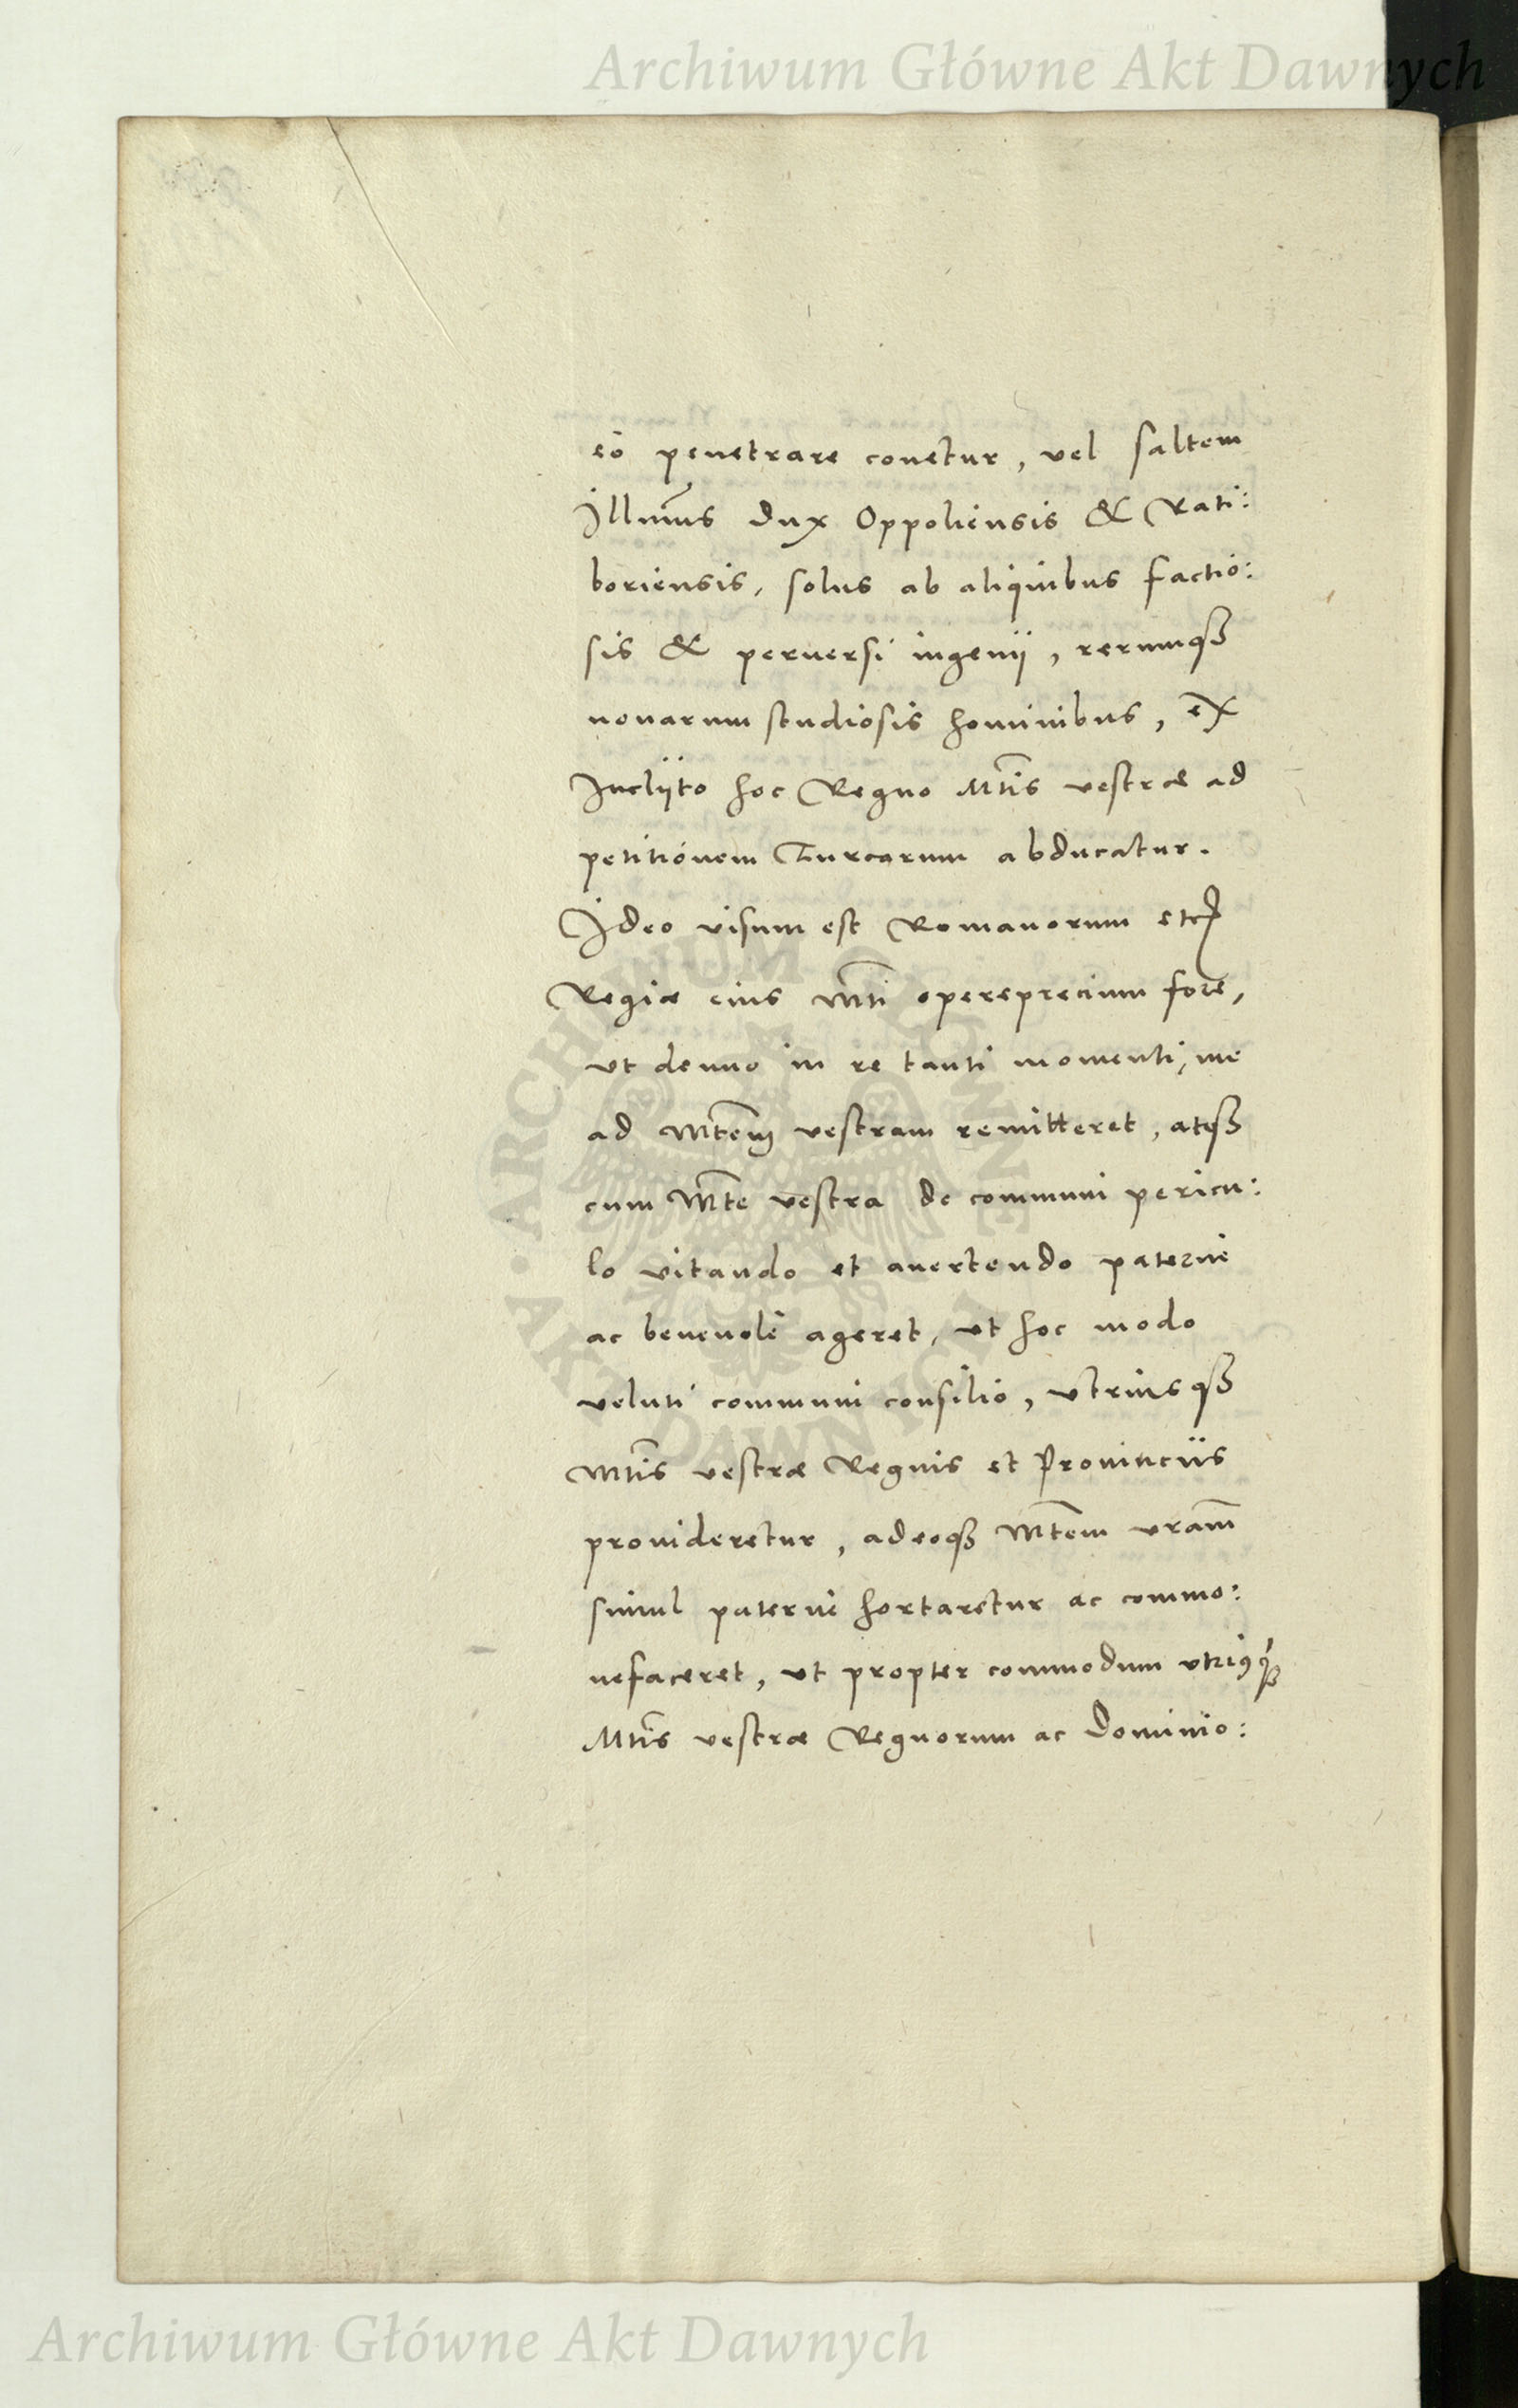 Archiwum Główne Akt Dawnych
eò penetrare conetur, vel saltem
Illmus Dux Oppoliensis & Rati:
boriensis, solus ab aliquibus factio:
sis & peruersi ingenij, rerumqȝ
nouarum studiosis hominibus, ex
Inclÿto hoc Regno Mtis vestræ ad
petitiónem Turcarum abducatur.
Ideo visum est Romanorum etc
Regiæ eius Mti operepreciúm fore,
vt denuo in re tanti momenti, me
ad Mtem vestram remitteret, atqȝ
cum Mte vestra de communi pericu:
lo vitando et auertendo paternè
ac beneuolè ageret, vt hoc modo
veluti communi consilio, vtriusqȝ
Mtis vestræ Regnis et Prouinciis
prouideretur, adeoqȝ Mtem vram
simul paternè hortaretur ac commo:
nefaceret, vt propter commodum vtriusqȝ
Mtis vestræ Regnorum ac Dominio:
ARCHIWUM GŁÓWNE
AKT DAWNYCH
Archiwum Główne Akt Dawnych